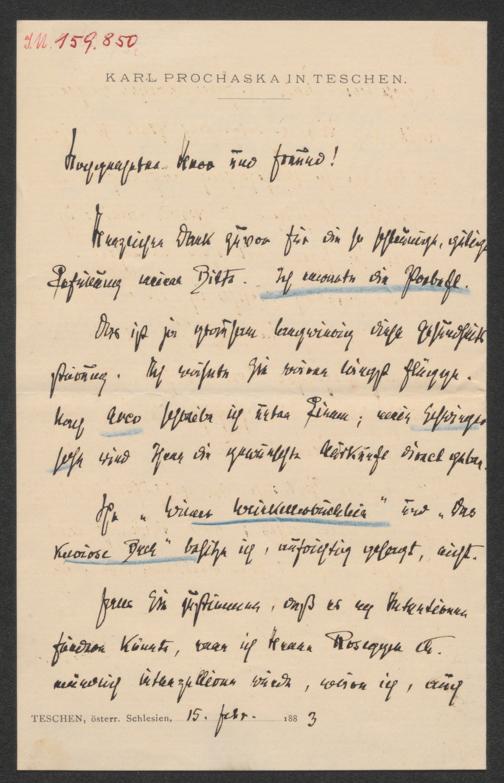 J.N. 159.850
KARL PROCHASKA IN TESCHEN.
Hochgeehrter Herr und Freund!
Herzlichen Dank zuvor für die so schleunige, gütige
Erfüllung meiner Bitte. Ich erwarte die
Das ist ja grausam langwierig diese Gesundheits
störung. Ich wähnte Sie wären längst flügge.
Nach Arco schreibe ich unter Einem; mein Schwieger
sohn wird Ihnen die gewünschte Auskünfte direct geben.
Ihr „Wiener Winkelbüchlein" und „Das
Kuriose Buch" besitze ich, aufrichtig gesagt, nicht.
Sie zustimmen, daß es my Intentionen
fördern könnte, wenn ich Herrn Rosegger
interpelliren würde, ich, auch
TESCHEN, österr. Schlesien, 15. Febr. 1883